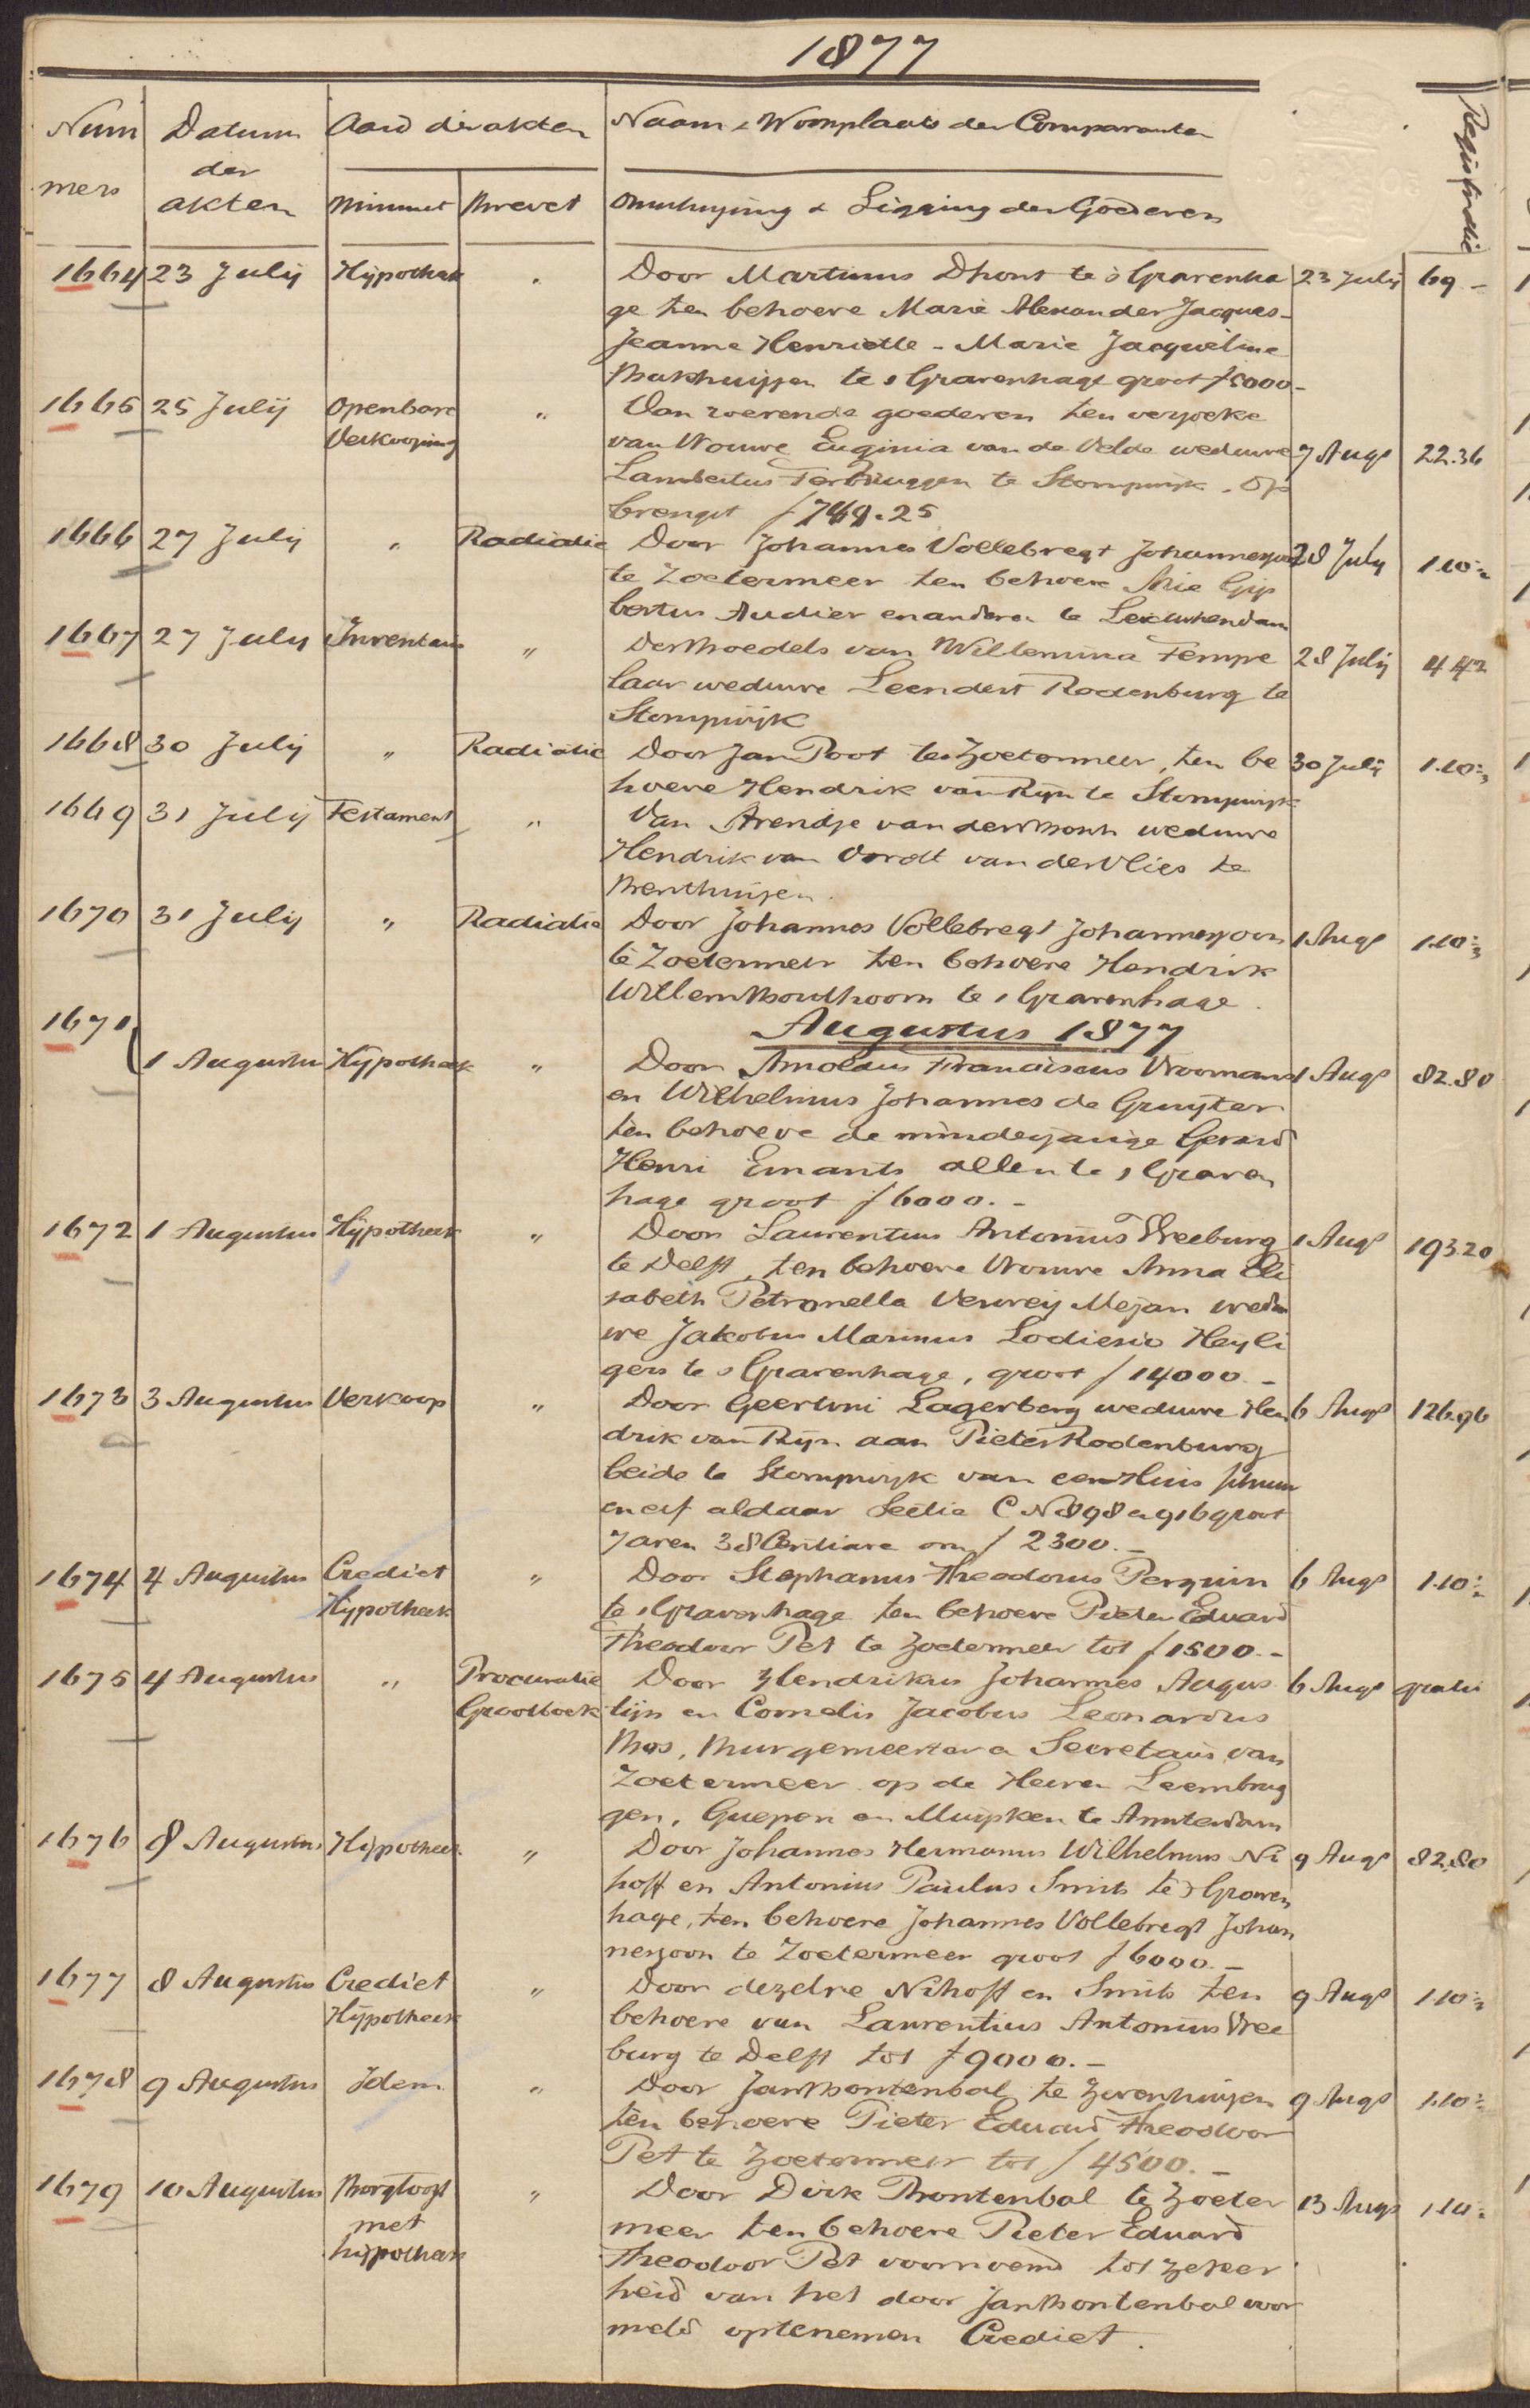 1877
Nummers Datum der akten Aard der akten Naam & Woonplaats der Comparanten Registratie
Minuut Brevet Omschrijving & Ligging der Goederen
1664 23 Julij Hypotheek " Door Martinus Dhont te 's Gravenha 23 Julij 69 -
ge ten behoeve Marie Alexander Jacques -
Jeanne Henriette - Marie Jacqueline
Bakhuijzen te 's Gravenhage groot f 5000 -
1665 25 Julij Openbare " Van roerende goederen ten verzoeke
Verkooping van Vrouwe Euginia van de Velde weduwe 7 Augs 22.36
Lambertus Terbruggen te Stompwijk. Op
brengst f 749.25
1666 27 Julij " Radiatie Door Johannes Vollebregt Johanneszoon 28 Julij 1.10½
te Zoetermeer ten behoeve Arie Gijs
bertus Audier en anderen te Leidschendam
1667 27 July Inventaris " Des Boedels van Willemina Tempe 28 Julij 4.42
laar weduwe Leendert Rodenburg te
Stompwijk
1668 30 Julij " Radiatie Door Jan Poot te Zoetermeer, ten be 30 Julij 1.10½
hoeve Hendrik van Rijn te Stompwijk
1669 31 Julij Testament " Van Arendje van der Bosch weduwe
Hendrik van Oordt van der Vlies te
Benthuizen.
1670 31 Julij " Radiatie Door Johannes Vollebregt Johanneszoon 1 Augs 1.10½
te Zoetermeer ten behoeve Hendrik
Willem Bouthoorn te 's Gravenhage.
Augustus 1877
1671 1 Augustus Hypotheek " Door Arnoldus Franciscus Vroomans 1 Augs 82.80
en Wilhelmus Johannes de Gruijter
ten behoeve de minderjarige Gerard
Henri Emants allen te 's Graven
hage groot f 6000. -
1672 1 Augustus Hypotheek " Door Laurentius Antonius Vreeburg 1 Augs 193.20
te Delft, ten behoeve Vrouwe Anna Eli
sabeth Petronella Verweij Mejan wedu
we Jakobus Marinus Lodiesio Heyli
gers te 's Gravenhage, groot f 14000. -
1673 3 Augustus Verkoop " Door Geertrui Lagerberg weduwe Hen 6 Augs 126.96
drik van Rijn aan Pieter Rodenburg
beide te Stompwijk van een Huis schuur
en erf aldaar Sectie C No 898 en 916 groot
7 aren 38 Centiare om f 2300. -
1674 4 Augustus Crediet " Door Stephanus Theodorus Perquin 6 Augs 1.10½
Hypotheek te 's Gravenhage ten behoeve Pieter Eduard
Theodoor Pet te Zoetermeer tot f 1500. -
1675 4 Augustus " Procuratie Door Hendrikus Johannes Augus 6 Augs gratis
Grootboek tijn en Cornelis Jacobus Leonardus
Bos, Burgemeester en Secretaris van
Zoetermeer op de Heeren Leembrug
gen, Guepon en Muijsken te Amsterdam
1676 8 Augustus Hypotheek " Door Johannes Hermanus Wilhelmus Ni 9 Augs 82.80
hoff en Antonius Paulus Smits te 's Graven
hage, ten behoeve Johannes Vollebregt Johan
neszoon te Zoetermeer groot f 6000. -
1677 8 Augustus Crediet " Door dezelve Nihoff en Smits ten 9 Augs 1.10½
Hypotheek behoeve van Laurentius Antonius Vree
burg te Delft tot f 9000. -
1678 9 Augustus Idem " Door Jan Bontenbal te Zevenhuizen 9 Augs 1.10½
ten behoeve Pieter Eduard Theodoor
Pet te Zoetermeer tot f 4500. -
1679 10 Augustus Borgtogt " Door Dirk Bontenbal te Zoeter 13 Augs 1.10½
met meer ten behoeve Pieter Eduard
hypotheek Theodoor Pet voornoemd tot zeker
heid van het door Jan Bontenbal voor
meld optenemen Crediet.